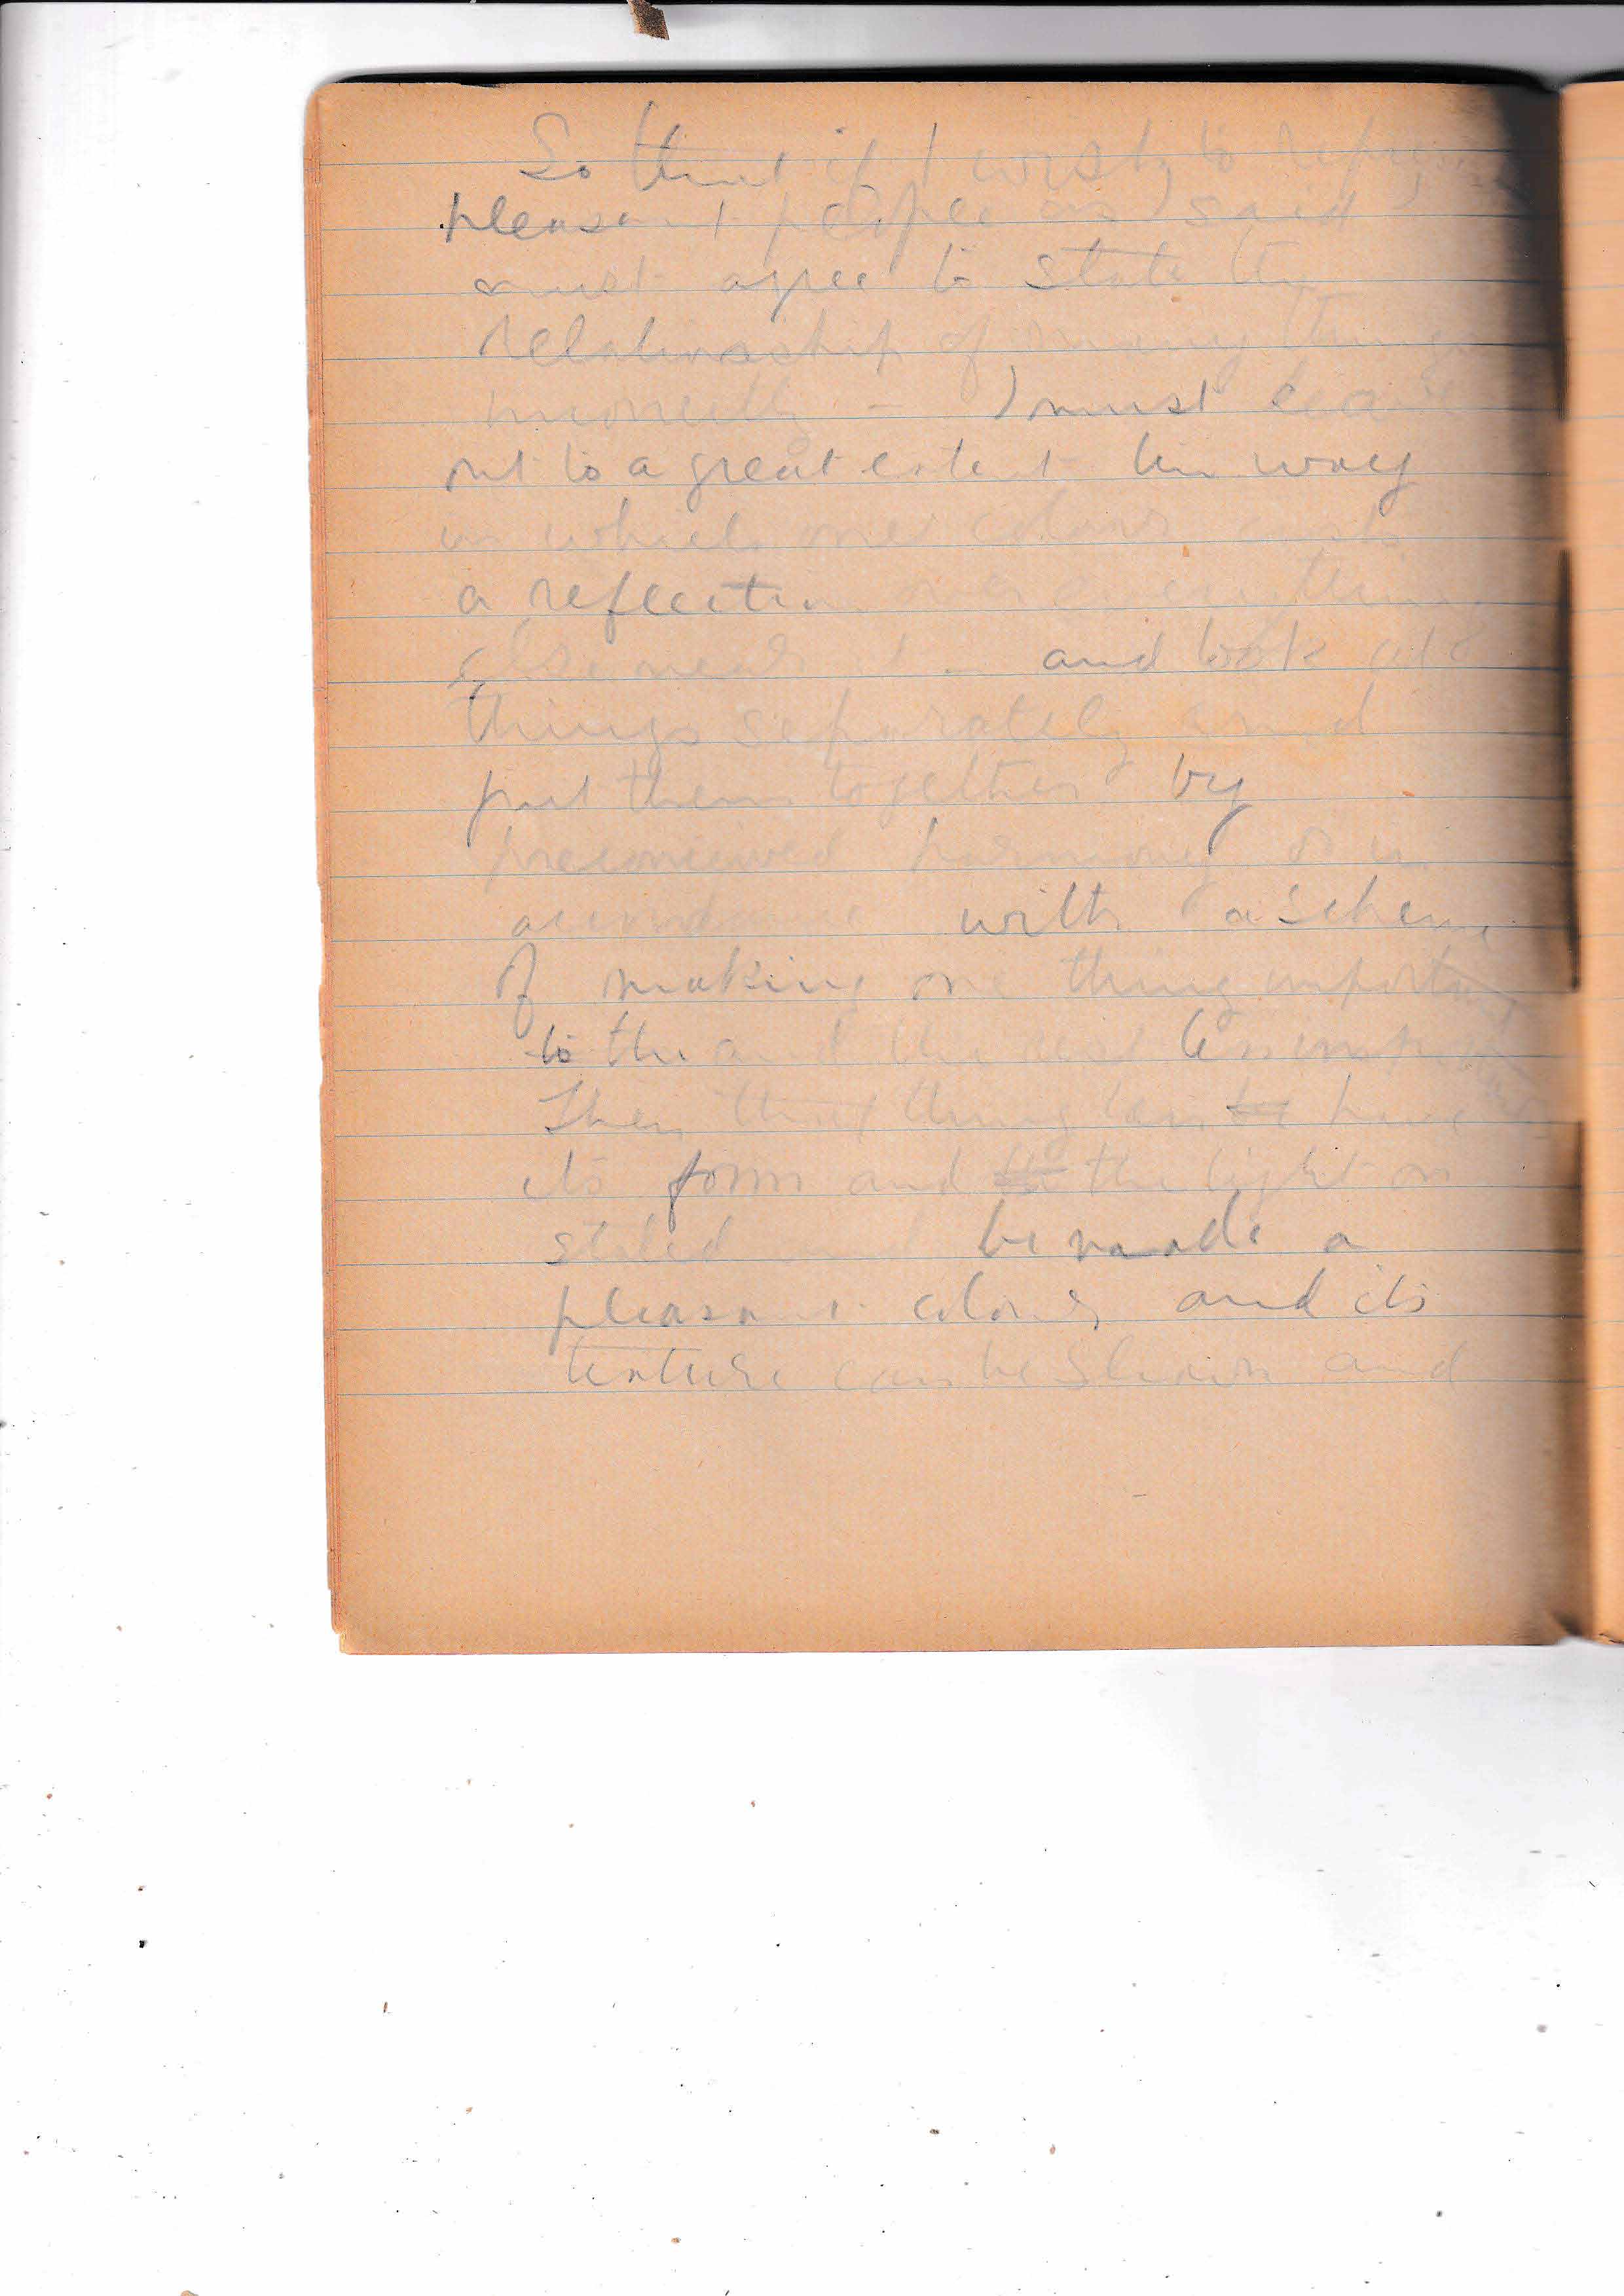 So that if I wish to
pleasant people as I said I
must agree to state the
relationship of many things
incorrectly – I must leave
out to a great extent the way
in which one colour casts
a reflection over everything
else near it – and look at
things separately and
put them together by
preconceived harmony or in
accordance with a scheme
of making one thing important
to the and the rest less important
Then that thing can be have
its form and the the light on
stated be made a
pleasant colour and its
texture can be shown and